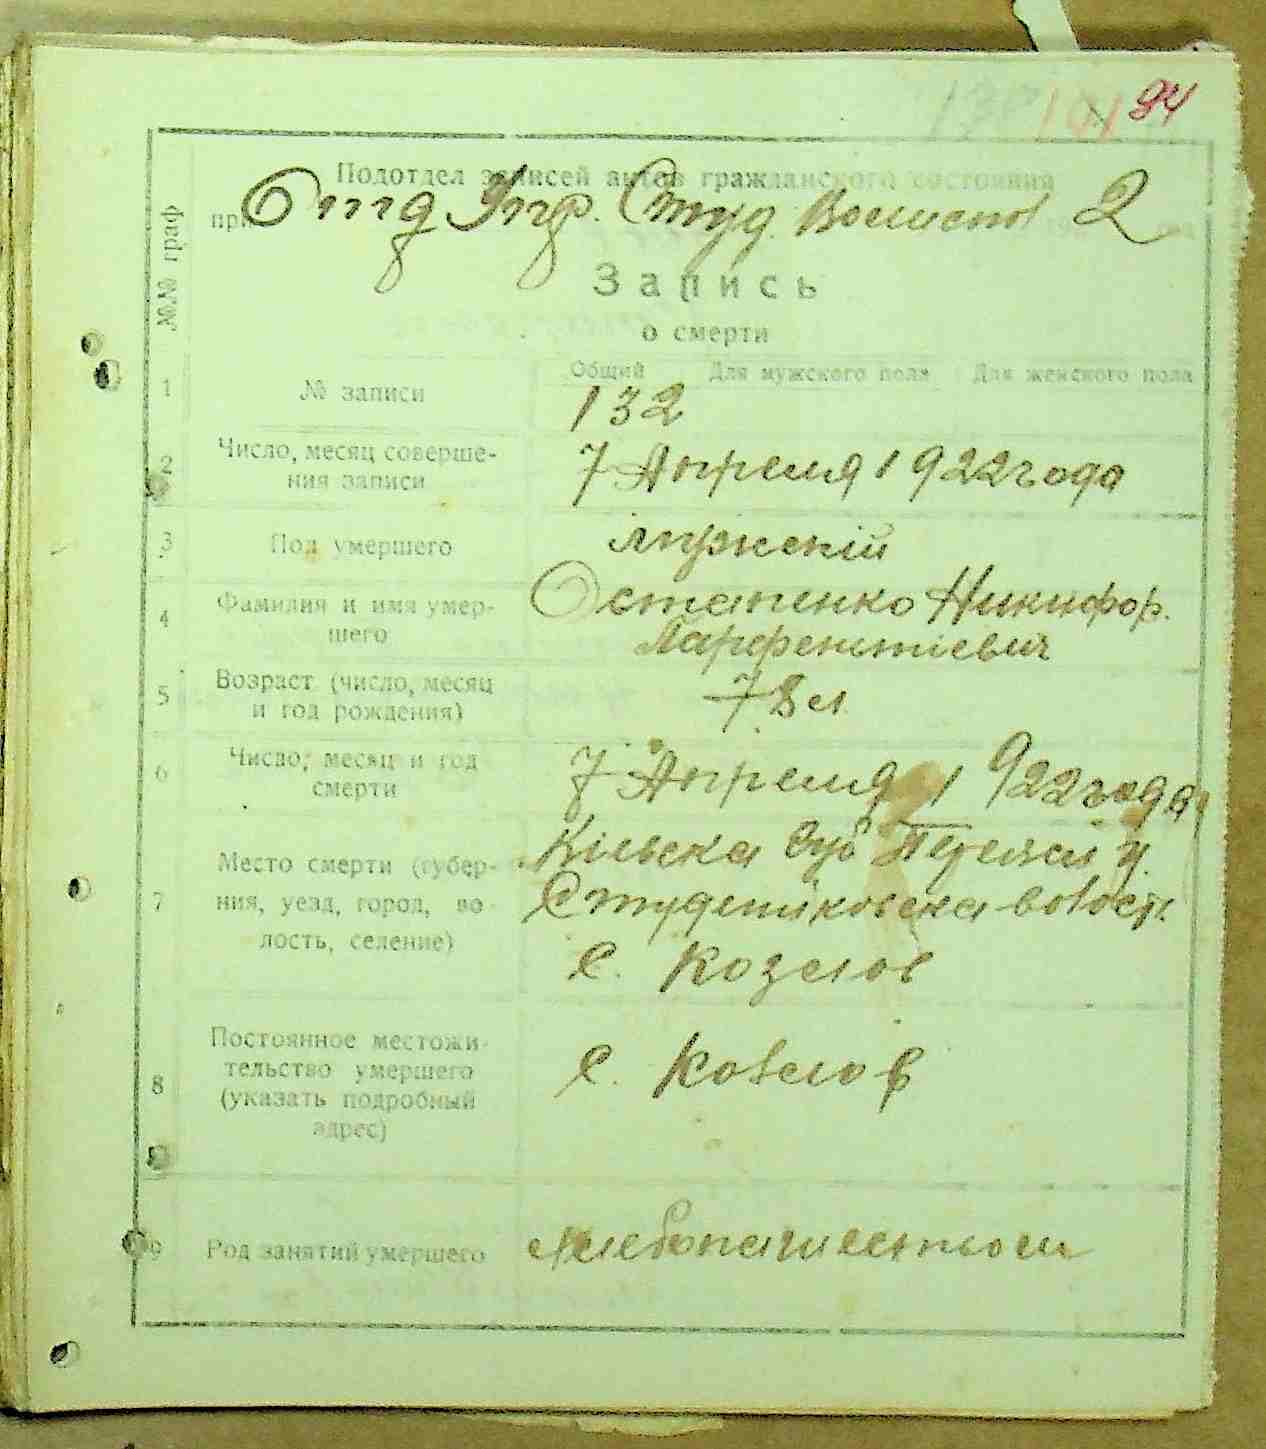 94
Подотдел записей актов гражданского состояния
при Отд Упр. Студ. 2
Запись
о смерти
№№ граф
Общий Для мужского пола Для женского пола
1 № записи 132
2 Число, месяц соверше-
ния записи 7 Апреля 1922 года
3 Пол умершего мужскій
4 Фамилия и имя умер-
шего Остапенко Никифор.
Парфентіевич
5 Возраст (число, месяц
и год рождения) 78 л
6 Число, месяц и год
смерти 7 Апреля 1922 года
7 Место смерти (губер-
ния, уезд, город, во-
лость, селение) Кіевска губ Переясл у.
Студениковска волост.
с. Козлов
8 Постоянное местожи-
тельство умершего
(указать подробный
адрес) с. Козлов
9 Род занятий умершего хлебопашеством